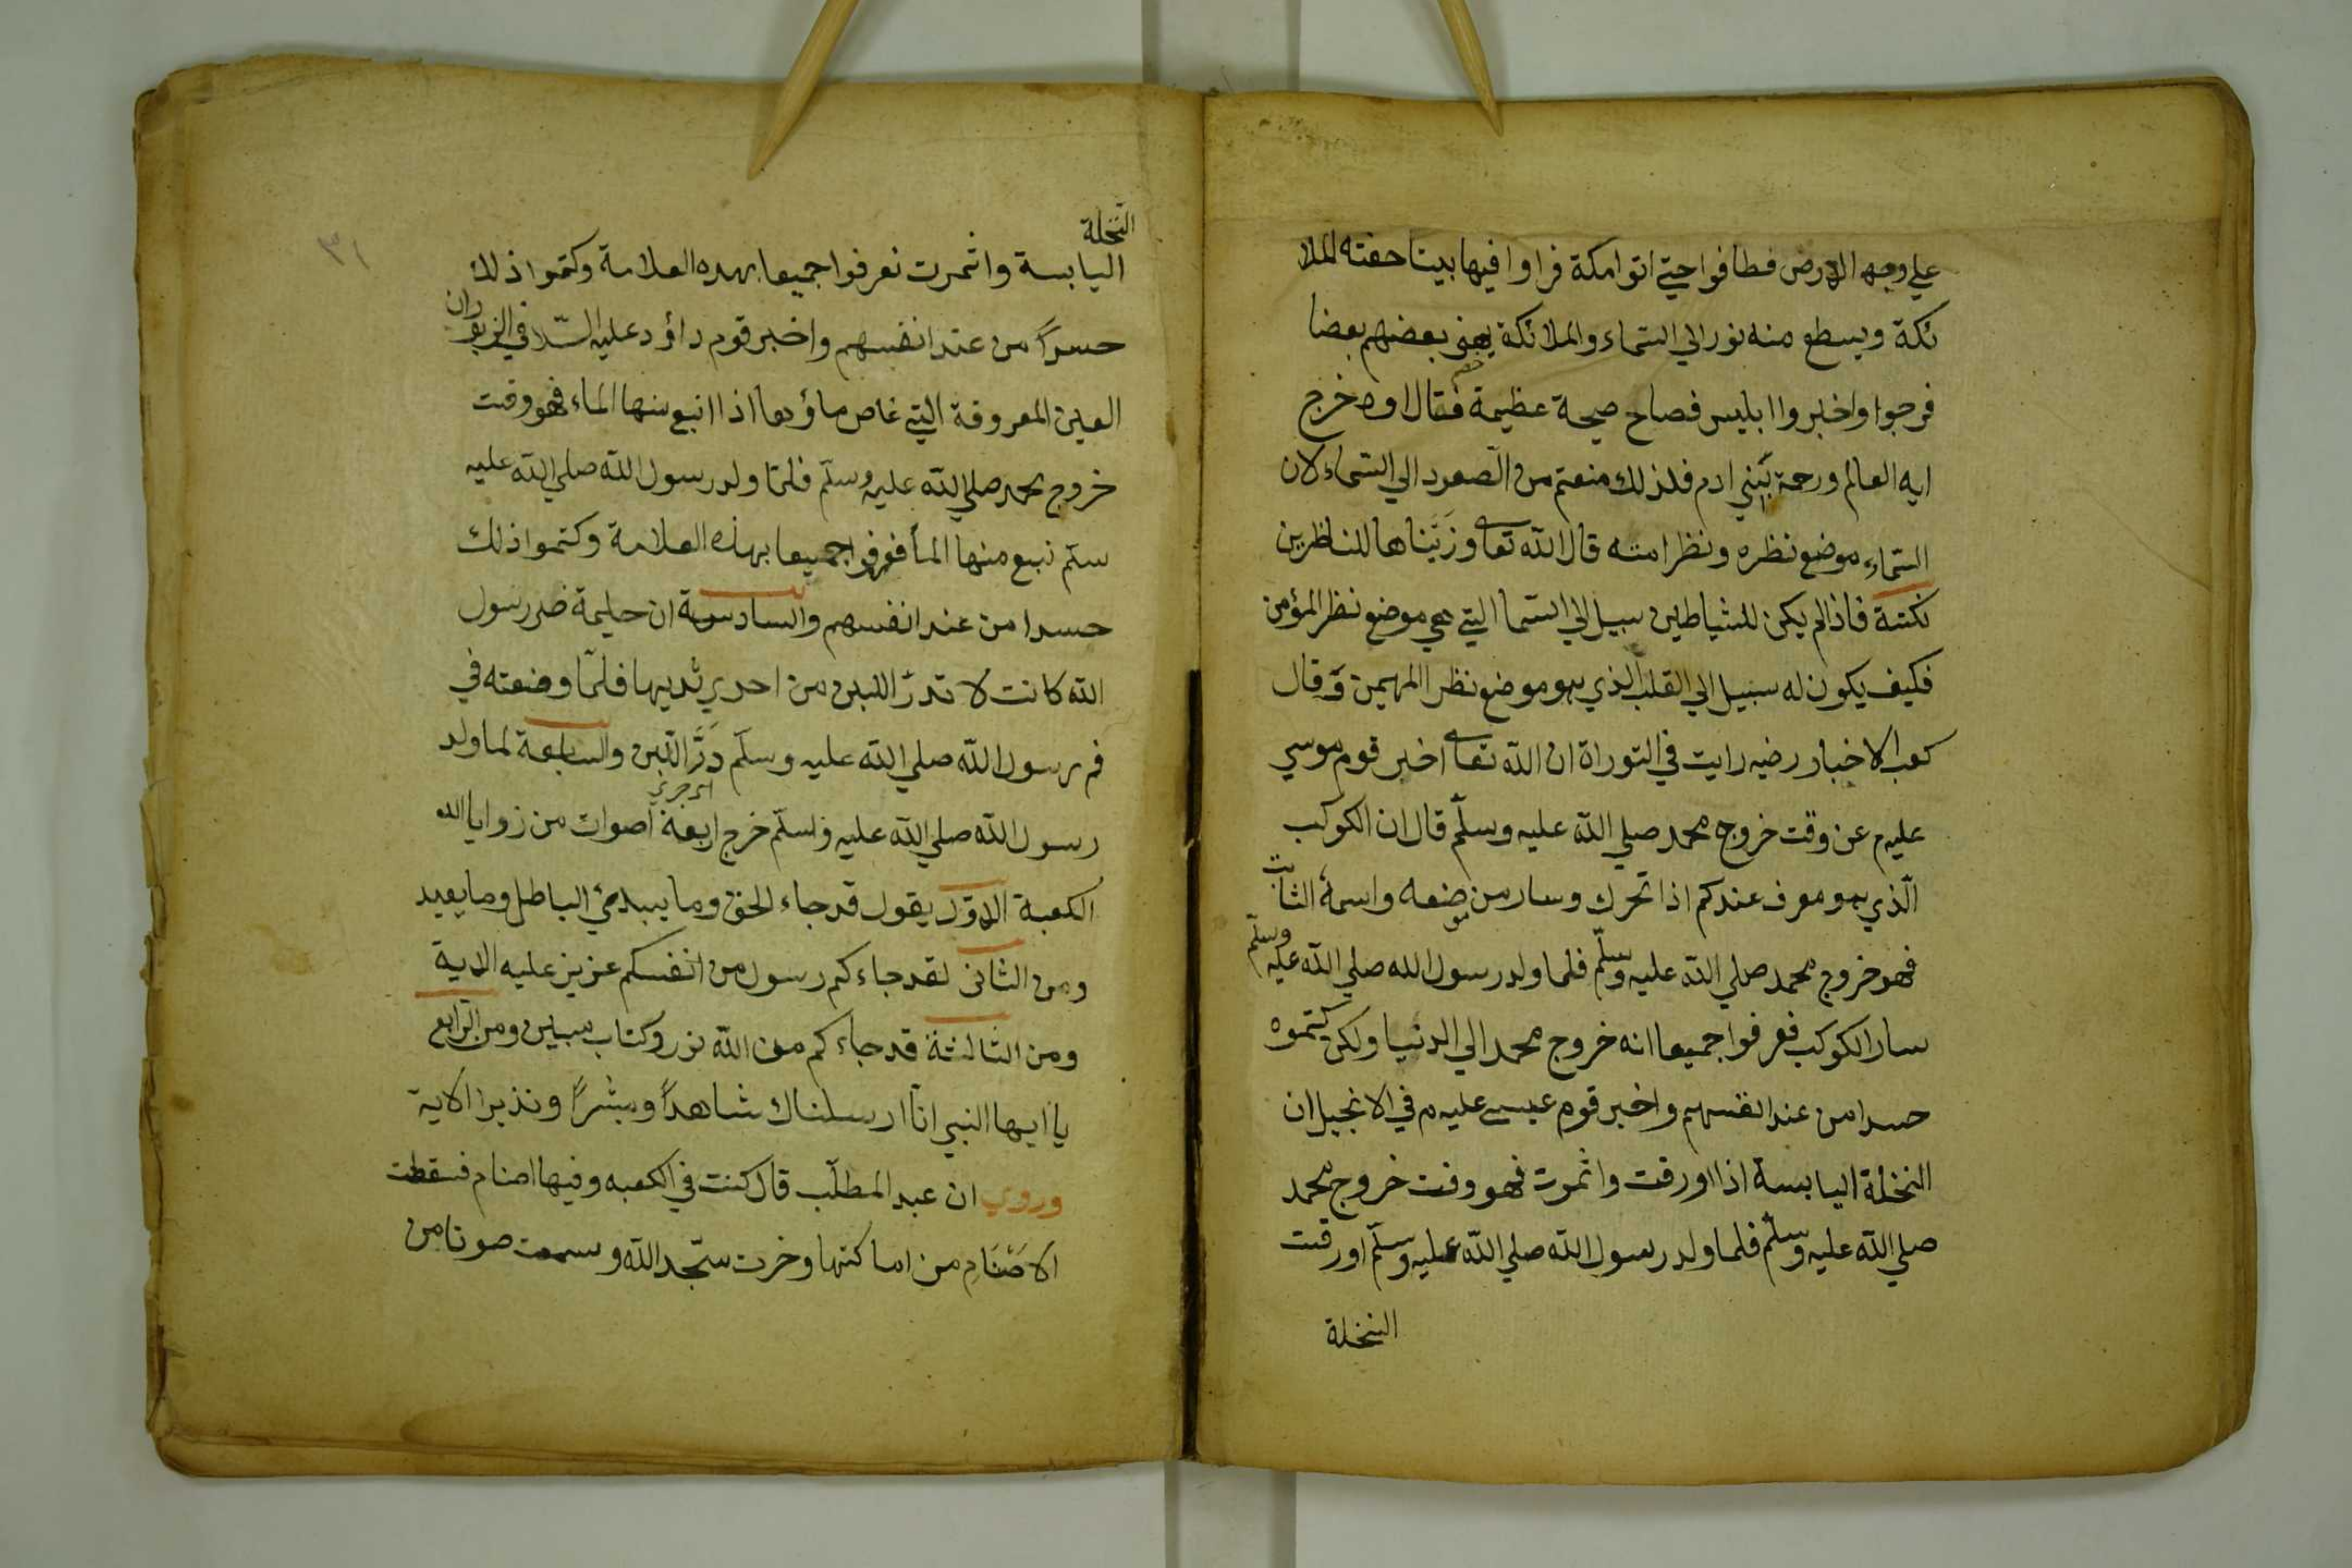 علي وجه الارض فطافوا حتي اتوا مكة فراوا فيها بيتا حفته الملا
ئكة ويسطع منه نور الي السماء والملائكة يهنو بعضهم بعضا
فرجوا واخبروا ابليس فصاح صيحة عظيمة فقال اوه خرج
ايه العالم ورحمة بني ادم فلذلك منعتم من الصعود الي السماء لان
السماء موضع نظره ونظر امته قال الله تعا وزَيَّناها للناظرين
نكتة فاذالم يكن للشياطين سبيل الي السما التي هي موضع نظر المؤمن
فكيف يكون له سبيل الي القلب الذي هو موضع نظر المهيمن وقال
كعب الاخبار رضيه رايت في التوراة ان الله تعا اخبر قوم موسي
عليه م عن وقت خروج محمد صلي الله عليه وسلّم قال ان الكوكب
الّذي هو معرف عندكم اذا تحرك وسار من موضعه واسمه الثابت
فهو خروج محمد صلي الله عليه وسلّم فلما ولد رسول الله صلي الله عليه وسلّم
سار الكوكب فعرفوا جميعا انه خروج محمد الي الدنيا ولكن كتموه
حسدا من عند انفسهم واخبر قوم عيسي عليه م في الانجيل ان
النخلة اليابسة اذا اورقت واثمرت فهو وقت خروج محمد
صلي الله عليه وسلّم فلما ولد رسول الله صلي الله عليه وسلّم اورقت
النخلة
٣١
النّخلة
اليابسة واثمرت نعرفوا جميعا بهذه العلامة وكتموا ذلك
حسداً من عند انفسهم واخبر قوم داؤد عليه السّلا في الزبور ان
العين المعروفة التي غاص ماؤها اذا انبع منها الماء فهو وقت
خروج محمد صلي الله عليه وسلّم فلمّا ولد رسول الله صلي الله عليه
سلّم نبع منها المأ فعرفوا جميعا بهذه العلامة وكتموا ذلك
حسدا من عند انفسهم والسادسة ان حليمة ضر رسول
الله كانت لا تدرّ اللبن من احدي ثديها فلمّا وضعته في
فم رسول الله صلي الله عليه وسلّم دَرَّ اللّبن والسابعة لما ولد
رسول الله صلي الله عليه وسلّم خرج اربعة اصوات من زوايا
الكعبة الاوّل يقول قد جاء الحق وما يبدئ الباطل وما يعيد
ومن الثاني لقد جاءكم رسول من انفسكم عزيز عليه الاية
ومن الثالثة قد جاءكم من الله نور وكتاب مبين ومن الرّابع
يا ايها النبي انّا ارسلناك شاهداً ومبشراً ونذيرا الاية
وروي ان عبد المطلّب قال كنت في الكعبه وفيها اصنام فسقطت
الاَصْنَامِ من اماكنها وخرت سّجد الله وسمعت صوتا من